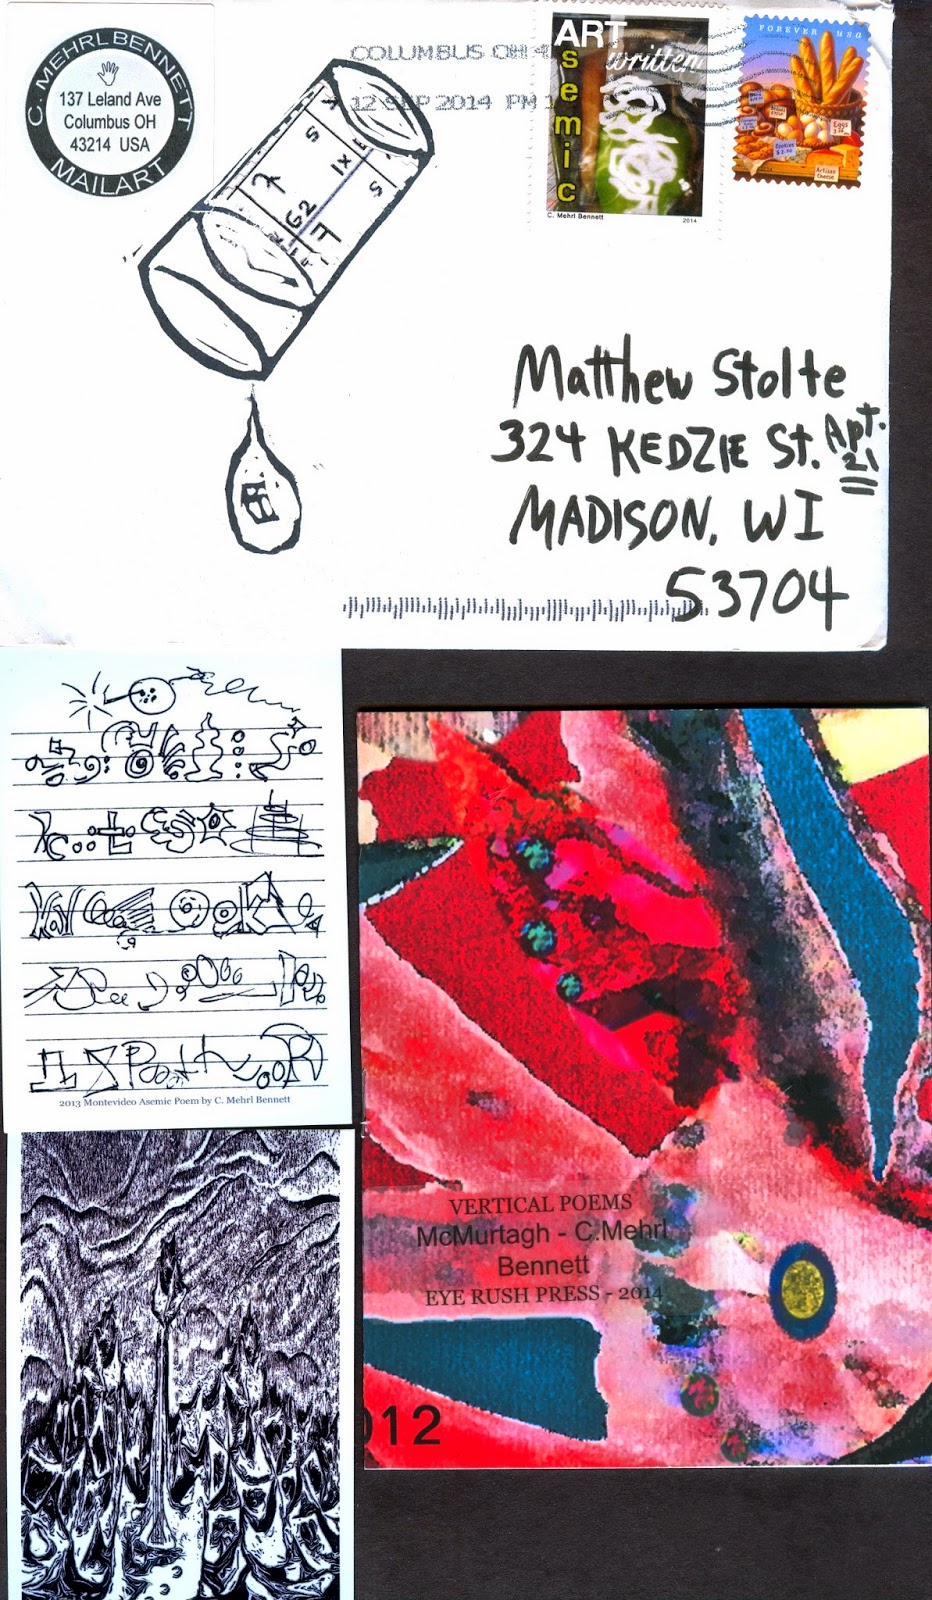 C. MEHRL BENNETT
137 Leland Ave
Columbus OH
43214 USA
MAILART
COLUMBUS OH
12 SEP 2014 PM
ART
written
semic
C. Mehrl Bennett
2014
FOREVER USA
Eggs
Cookies
Artisan
Cheese
Matthew Stolte
324 KEDZIE St. Apt.
21
MADISON, WI
53704
2013 Montevideo Asemic Poem by C. Mehrl Bennett
VERTICAL POEMS
McMurtagh - C.Mehrl
Bennett
EYE RUSH PRESS - 2014
012